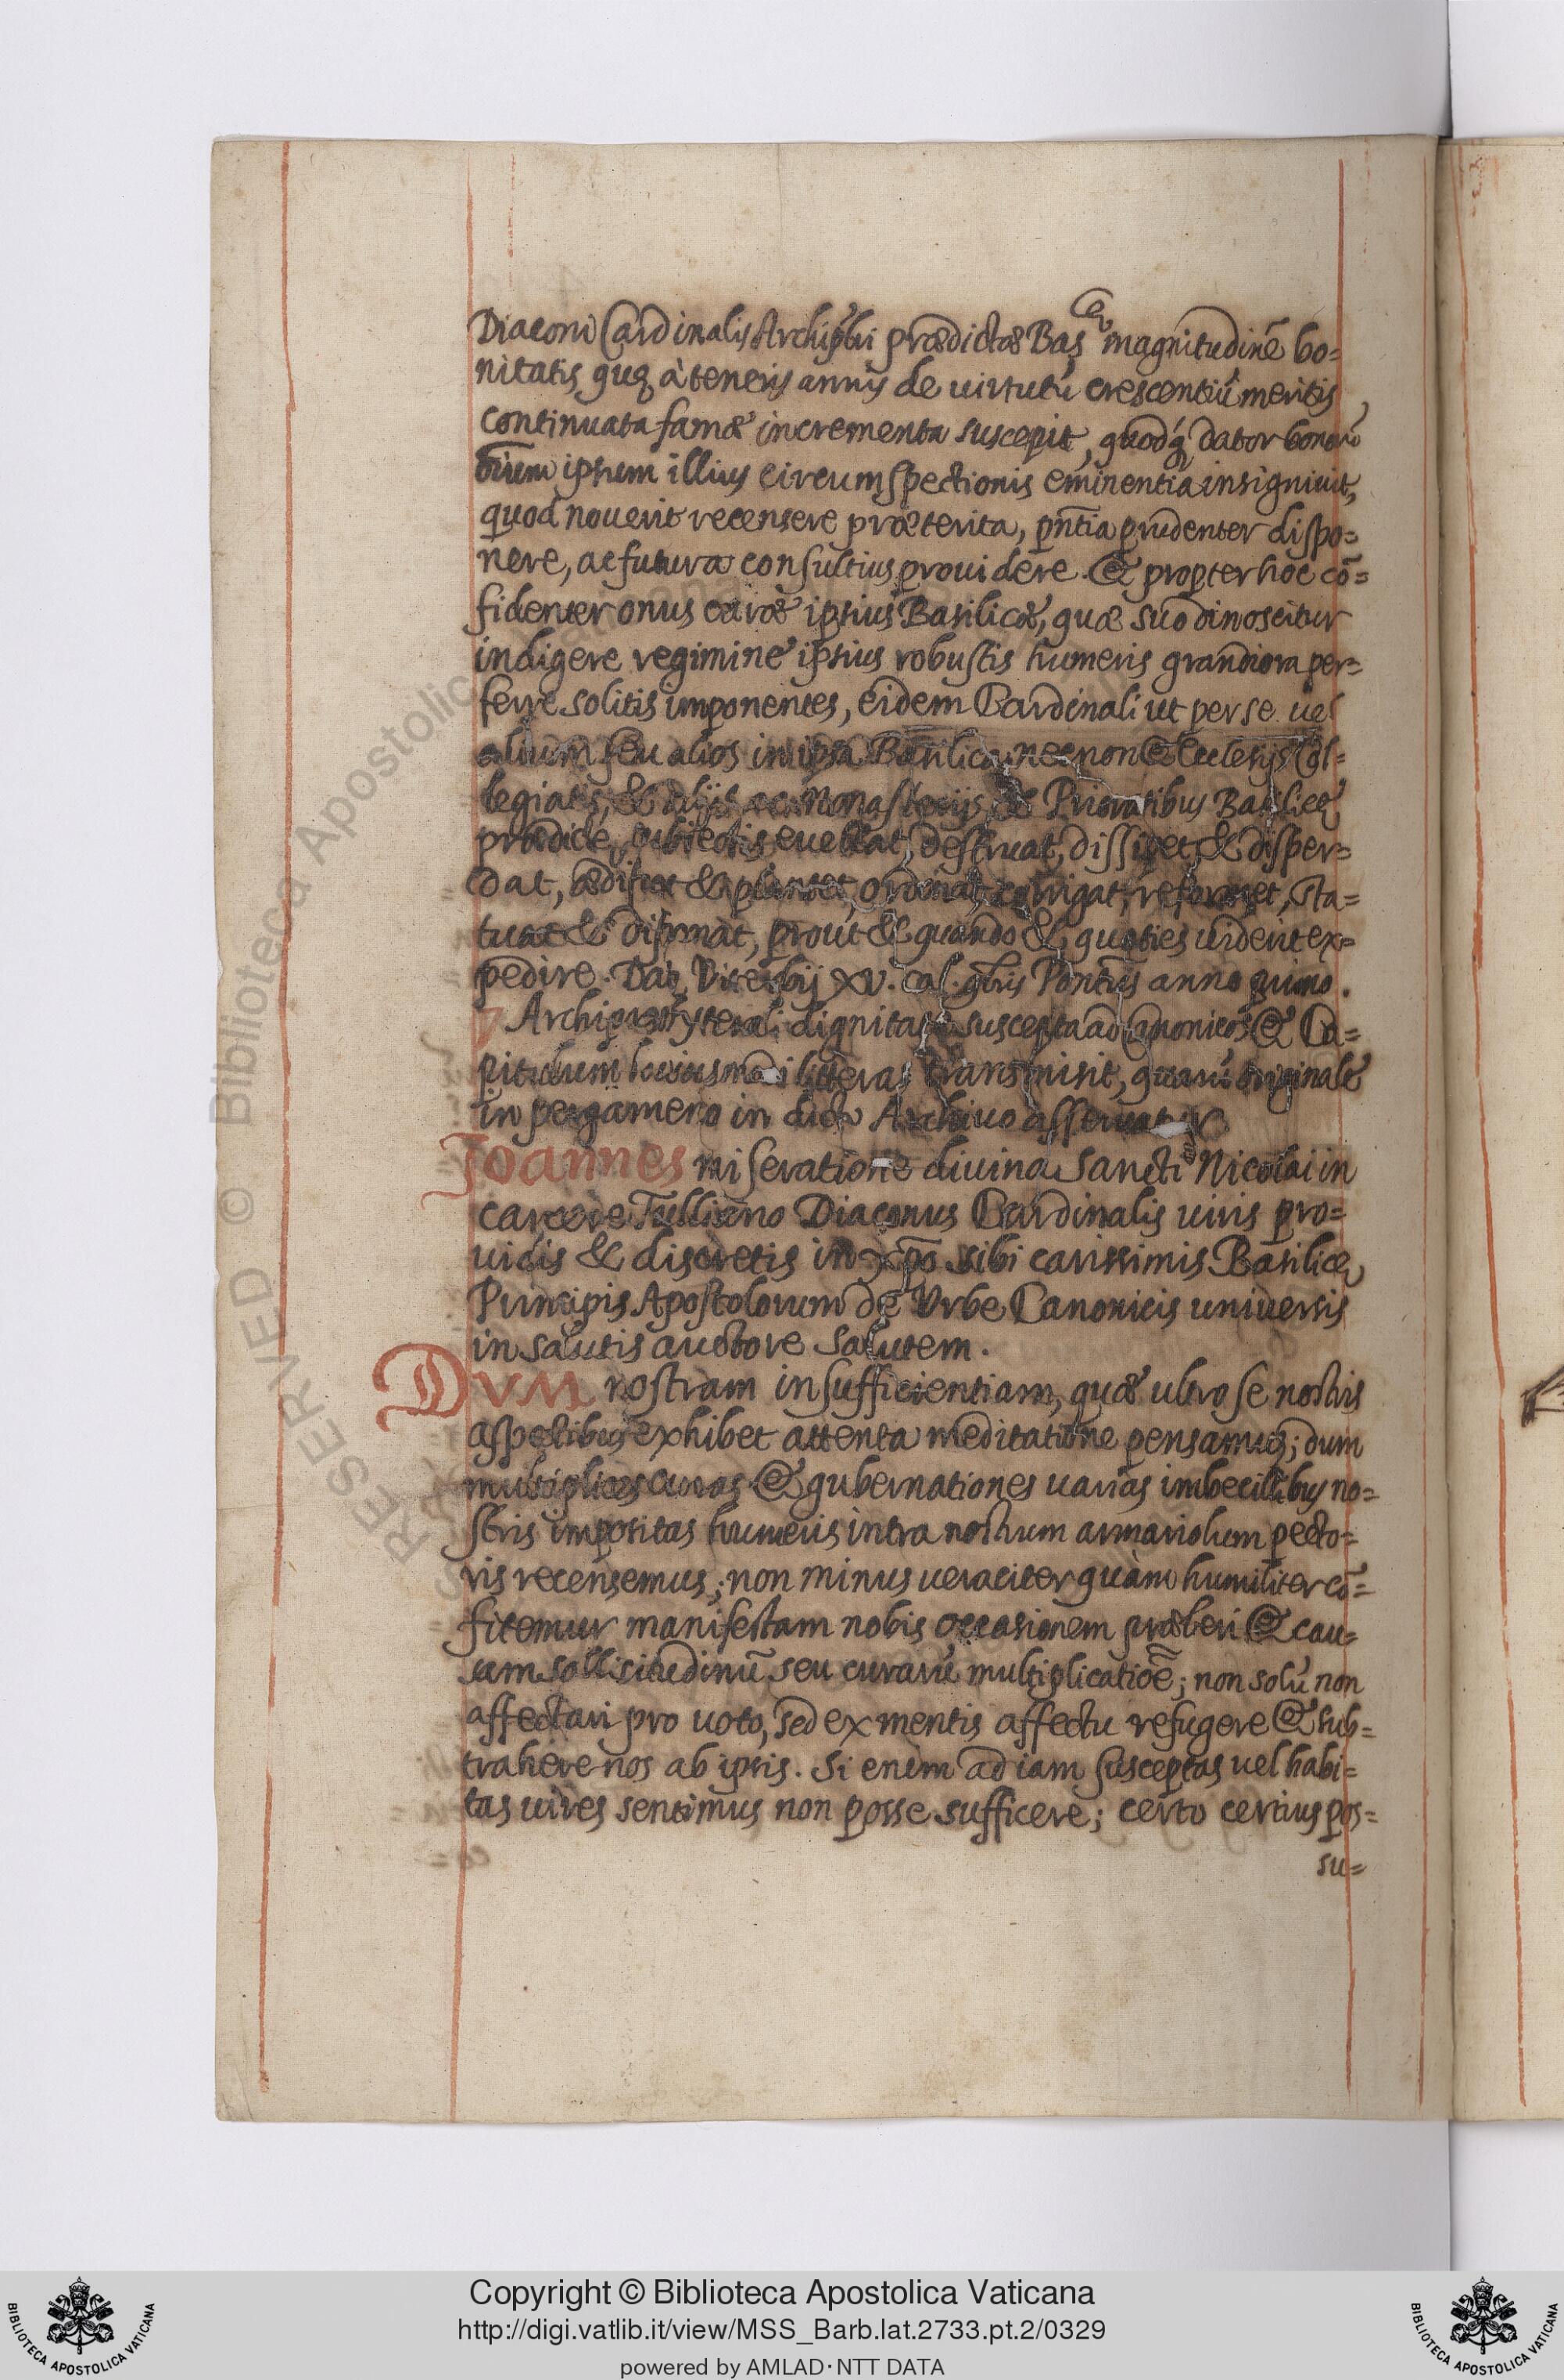 Diaconi Cardinalis Archipbri prædictæ Bas.ce magnitudinē bo=
nitatis, quę à teneris annis de uirtutū crescentiū meritis
continuata famæ incrementa suscepit, quodq́ dator bonorū
oīum ipsum illius circumspectionis eminentia insigniuit,
quod nouerit recensere præterita, pn̄tia prudenter dispo=
nere, ac futura consultius prouidere. & propter hoc cō=
fidenter onus curæ ipsius Basilicæ, quæ suo dinoscitur
indigere regimine ipsius robustis humeris grandiora per=
ferre solitis imponentes, eidem Cardinali ut per se uel
alium seu alios in ipsa Basilica, necnon & Ecclesijs Col=
legiatis, & alijs ac Monasterijs & Prioratibus Basilicę
prædictę subiectis euellat, destruat, dissipet, & disper=
dat, ædificet & plantet, ordinet, corrigat, reformet, sta=
tuat & disponat, prout & quando & quoties uiderit ex=
pedire. Dat. Viterbij XV. Cal. 9bris Pontūs anno primo.
Archipresbyterali dignitate suscepta ad Canonicos & Ca=
pitulum huiusmodi litteras transmisit, quarū originale
in pergameno in dicto Archiuo asseruatur
Joannes miseratione diuina Sancti Nicolai in
carcere Tulliano Diaconus Cardinalis uiris pro=
uidis & discretis in xp̄o sibi carissimis Basilicę
Principis Apostolorum de Vrbe Canonicis uniuersis
in salutis auctore salutem.
DVM nostram insufficientiam, quæ ultro se nostris
aspectibus exhibet attenta meditatione pensamus; dum
multiplices curas & gubernationes uarias imbecillibus no=
stris impositas humeris intra nostrum armariolum pecto=
ris recensemus; non minus ueraciter quàm humiliter cō=
fitemur manifestam nobis occasionem præberi & cau=
sam sollicitudinū seu curarū multiplicatiōē; non solū non
affectari pro uoto, sed ex mentis affectu refugere & sub=
trahere nos ab ipsis. Si enim ad iam susceptas uel habi=
tas uires sentimus non posse sufficere; certo certius pos=
su=
RESERVED © Biblioteca Apostolica Vaticana
Copyright © Biblioteca Apostolica Vaticana
http://digi.vatlib.it/view/MSS_Barb.lat.2733.pt.2/0329
powered by AMLAD·NTT DATA
BIBLIOTECA APOSTOLICA VATICANA
BIBLIOTECA APOSTOLICA VATICANA